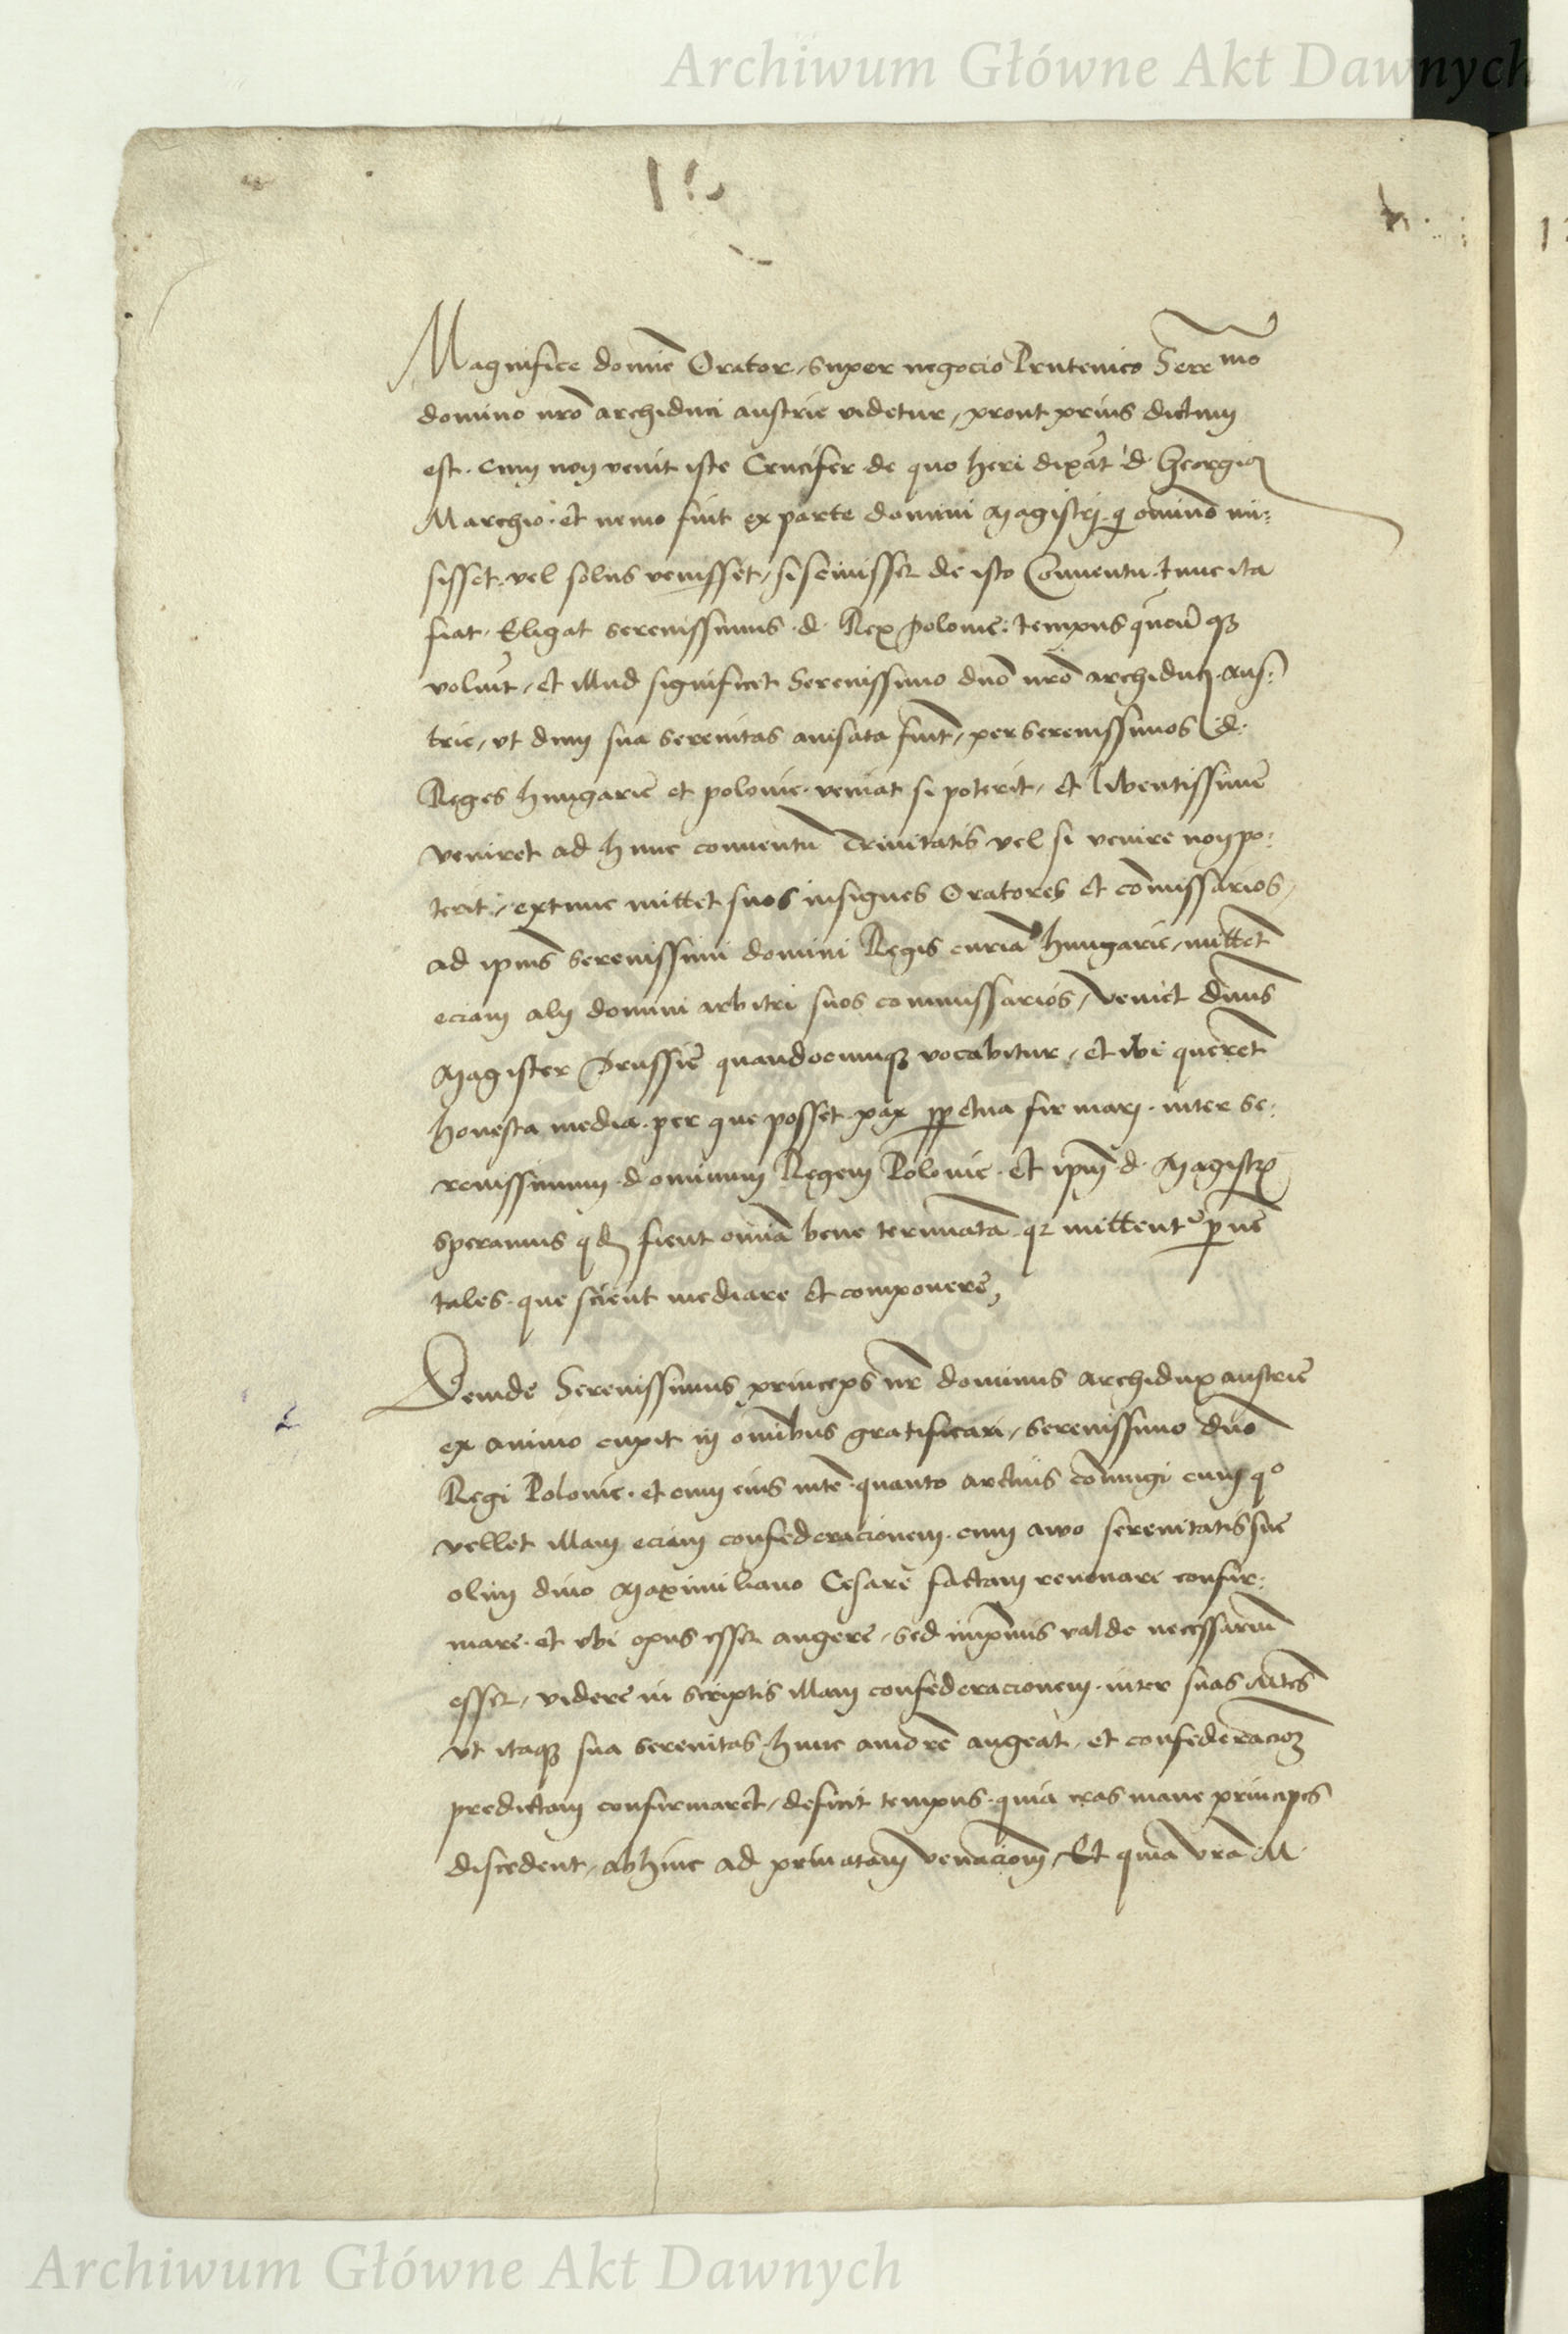 Archiwum Główne Akt Dawnych
Magnifice domine Orator, super negocio Prutenico Sere mo
domino nro archiduci austrie videtur, prout prius dictum
est. cum non venit iste Crucifer de quo heri dixat d. Georgius
Marchio. et nemo fuit ex parte domini Magistri. q omnino mi:
sisset. vel solus venisset, si scivisset de isto Conventu. tunc ita
fiat. Eligat serenissimus d. Rex polonie: tempus
voluit, et illud significet Serenissimo dno nro archiduci. Aus:
trie, vt dum sua serenitas avisata fuit, per serenissimos d.
Reges hungarie et polonie. veniat si poterit, et libentissime
veniret ad hunc conventu Trinitatis vel si venire non po:
terit, extunc mittet suos insignes Oratores et comissarios,
ad ipius serenissimi domini Regis curia hungarie, mittet
eciam alij domini arbitri suos commissarios, veniet dnus
Magister Prussie quandocumq vocabitur, et ibi queret
honesta media. per que posset. pax ppetua firmari. inter se:
renissimum dominum Regem Polonie. et ipm d. Magistru
speramus qd fient omnia bene terminata. qr mittent psone
tales. que scient mediare et componere,
Deinde Serenissimus princeps nr dominus archidux austrie
ex animo cupit in omibus gratificari, serenissimo dno
Regi Polonie. et cum eius mte. quanto arctius coniungi cum qo
vellet illam eciam confederacionem. cum avo serenitatis sue
olim divo Maximiliano Cesare factam renovare confir:
mare. et vbi opus esset augere, sed inprimis valde necessariu
esset, videre in scriptis illam confederacionem. inter suas Mtes
vt itaq sua serenitas. hunc amore augeat, et confederacio
predictam confirmaret, deficit tempus. quia cras mane principes
discedent, abhinc ad privatam venacionem, Et quia vra M.
Archiwum Główne Akt Dawnych